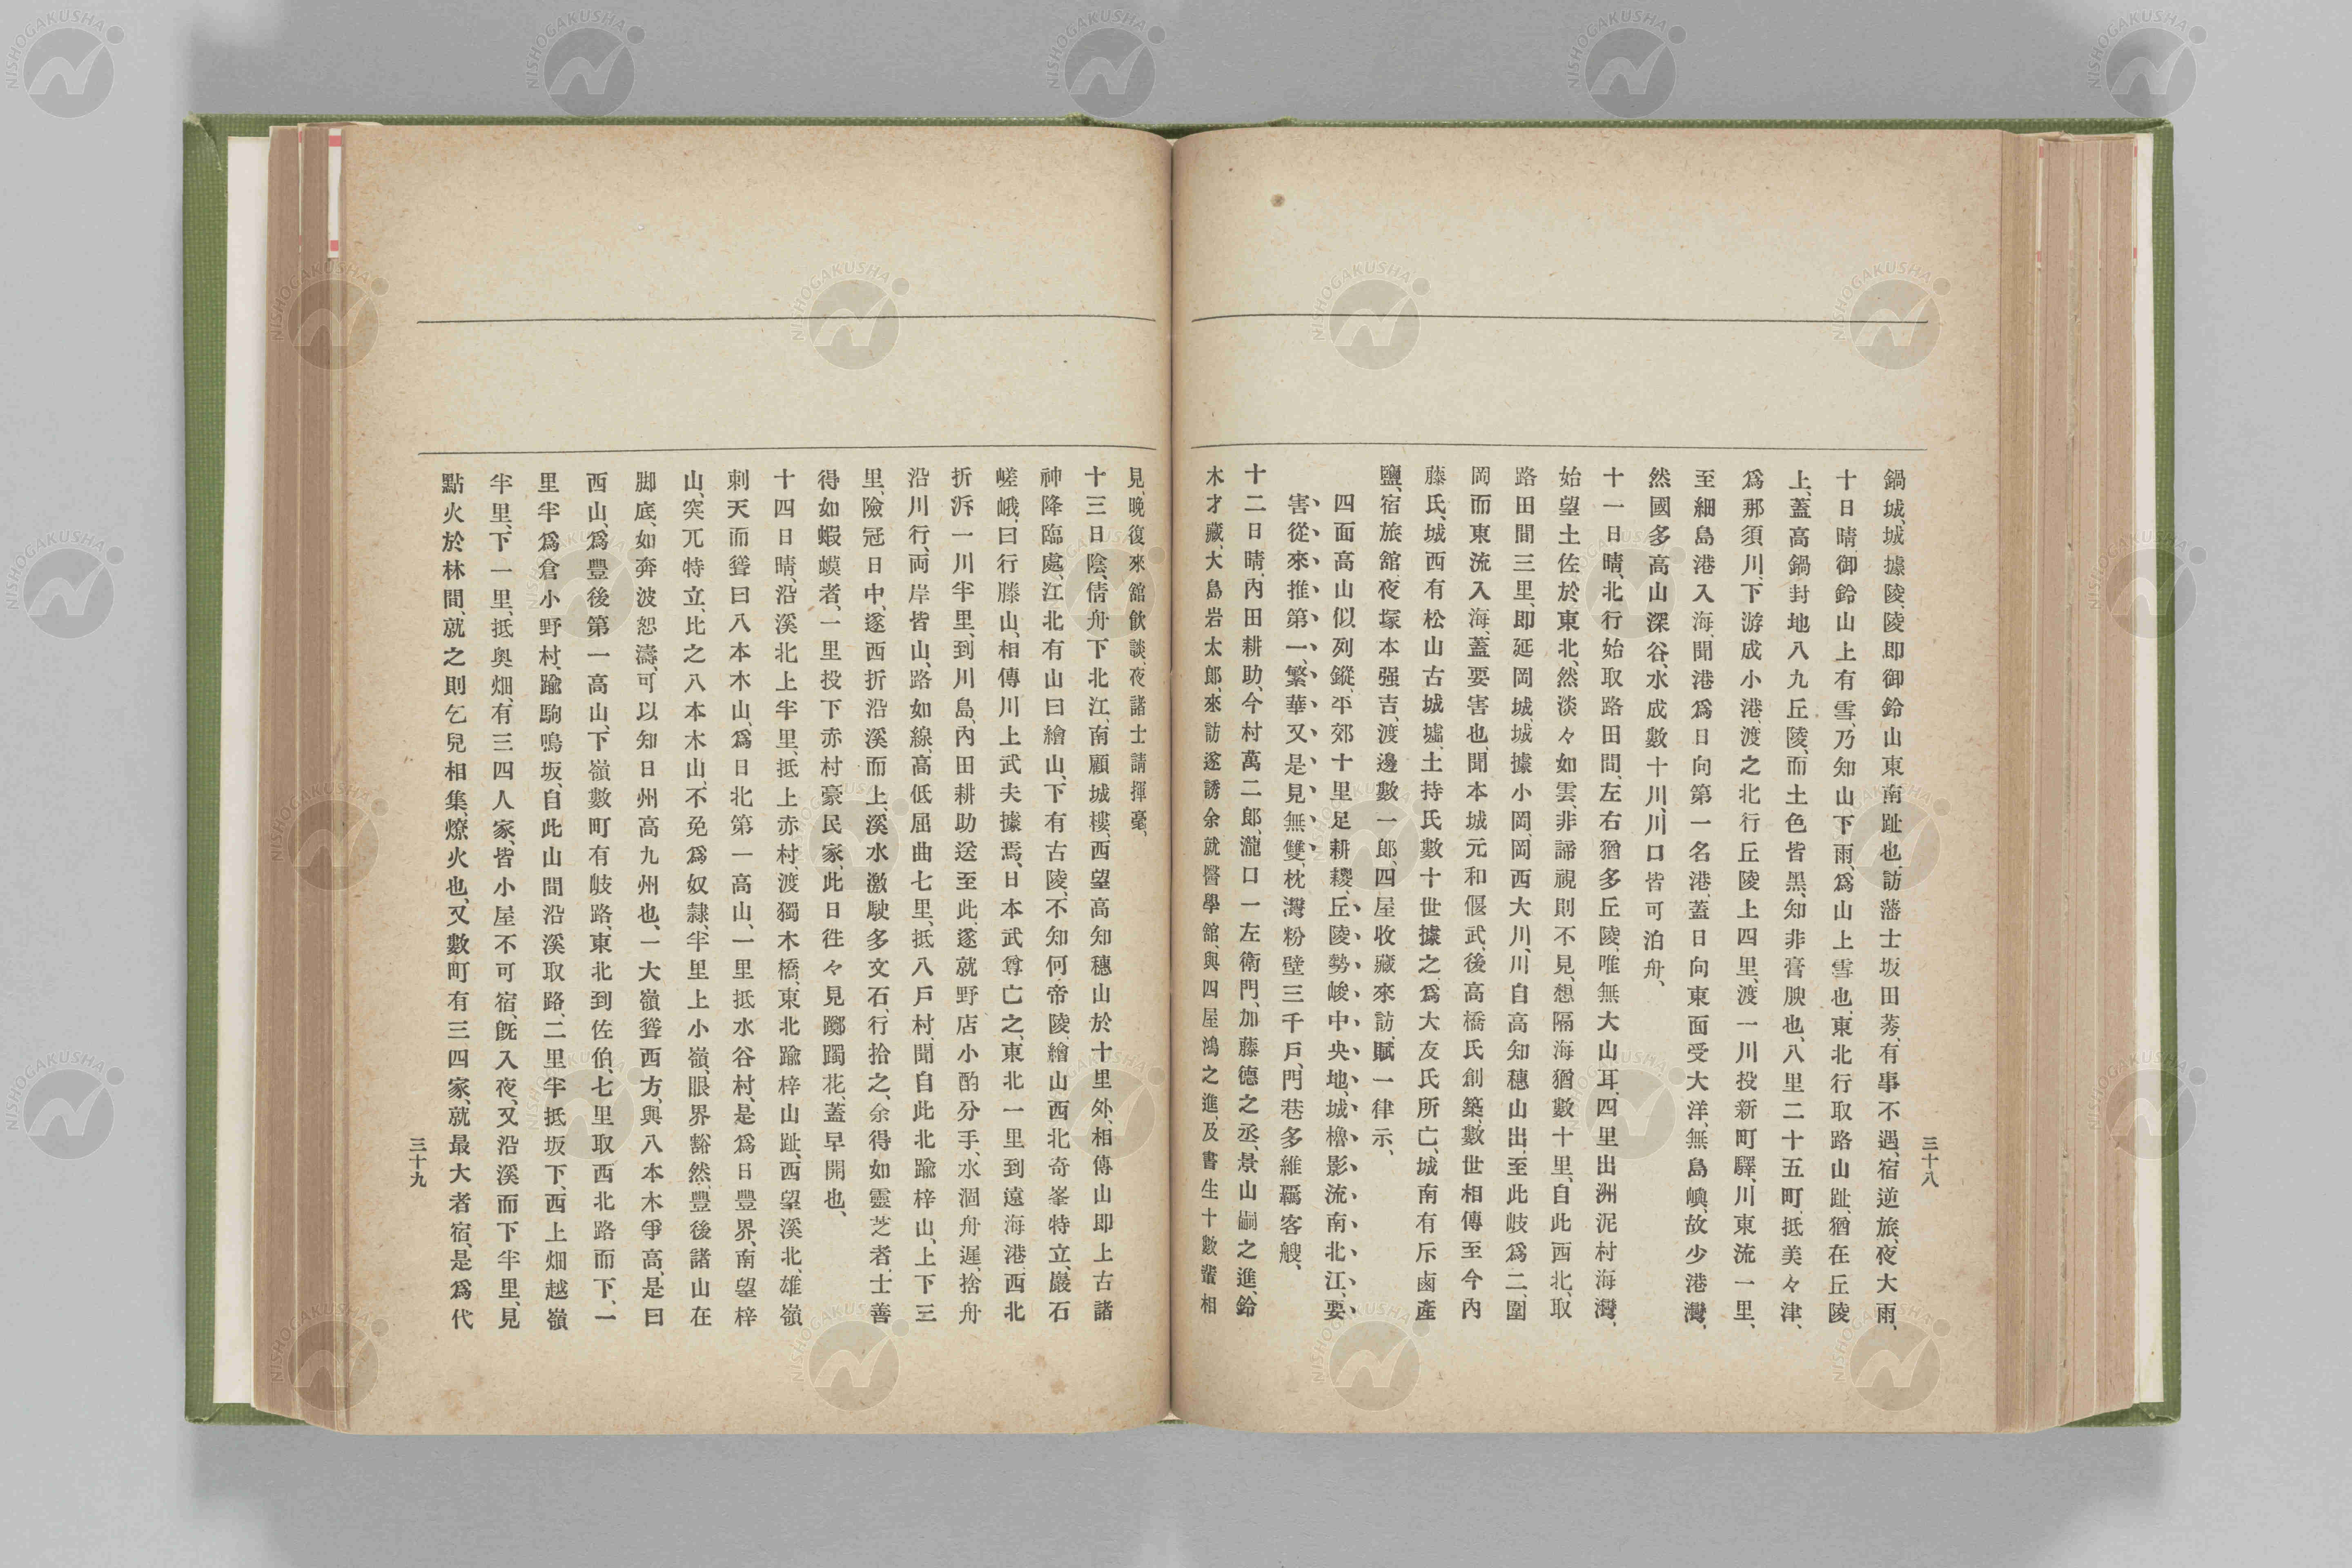 鍋城、城據陵、陵即御鈴山東南趾也、訪藩士坂田莠、有事不遇、宿逆旅、夜大雨、
十日晴、御鈴山上有雪、乃知山下雨、爲山上雪也、東北行取路山趾、猶在丘陵
上、蓋高鍋封地八九丘陵、而土色皆黑、知非膏腴也、八里二十五町、抵美々津、
爲那須川、下游成小港、渡之北行丘陵上四里、渡一川投新町驛、川東流一里、
至細島港入海、聞港爲日向第一名港、蓋日向東面受大洋、無島嶼、故少港灣、
然國多高山深谷、水成數十川、川口皆可泊舟、
十一日晴、北行始取路田間、左右猶多丘陵、唯無大山耳、四里出洲泥村海灣、
始望土佐於東北、然淡々如雲、非諦視則不見、想隔海猶數十里、自此西北、取
路田間三里、即延岡城、城據小岡、岡西大川、川自高知穗山出、至此岐爲二、圍
岡而東流入海、蓋要害也、聞本城元和偃武、後高橋氏創築、數世相傳至今內
藤氏、城西有松山古城墟、土持氏數十世據之、爲大友氏所亡、城南有斥鹵產
鹽、宿旅舘夜塚本强吉、渡邊數一郎、四屋收藏來訪、賦一律示、
四面高山似列鏦、平郊十里足耕耰、丘陵勢峻中央地、城櫓影流南北江、要
害從來推第一、繁華又是見無雙、枕灣粉壁三千戶、門巷多維羈客艘、
十二日晴、內田耕助、今村萬二郎、瀧口一左衛門、加藤德之丞、景山嗣之進、鈴
木才藏、大島岩太郎、來訪遂誘余就醫學舘、與四屋鴻之進、及書生十數輩相
三十八
見、晚復來舘飮談、夜諸士請揮毫、
十三日陰、倩舟下北江、南顧城樓、西望高知穗山於十里外、相傳山即上古諸
神降臨處、江北有山曰繪山、下有古陵、不知何帝陵、繪山西北奇峯特立、巖石
嵯峨、曰行縢山、相傳川上武夫據焉、日本武尊亡之、東北一里到遠海港、西北
折泝一川半里、到川島、內田耕助送至此、遂就野店小酌分手、水涸舟遲、捨舟
沿川行、兩岸皆山、路如線、高低屈曲七里、抵八戶村、聞自此北踰梓山、上下三
里、險冠日中、遂西折沿溪而上、溪水激駛多文石、行拾之、余得如靈芝者、士善
得如蝦蟆者、一里投下赤村豪民家、此日徃々見躑躅花、蓋早開也、
十四日晴、沿溪北上半里、抵上赤村渡獨木橋、東北踰梓山趾、西望溪北、雄嶺
刺天而聳曰八本木山、爲日北第一高山、一里抵水谷村、是爲日豐界、南望梓
山、突兀特立、比之八本木山、不免爲奴隸、半里上小嶺、眼界豁然、豐後諸山在
脚底、如奔波怒濤、可以知日州高九州也、一大嶺聳西方、與八本木爭高、是曰
西山、爲豐後第一高山、下嶺數町有岐路、東北到佐伯、七里取西北路而下、一
里半爲倉小野村、踰駒鳴坂、自此山間沿溪取路、二里半抵坂下、西上畑越嶺
半里、下一里、抵奧畑、有三四人家、皆小屋不可宿、旣入夜、又沿溪而下半里、見
點火於林間、就之則乞兒相集、燎火也、又數町有三四家、就最大者宿、是爲代
三十九